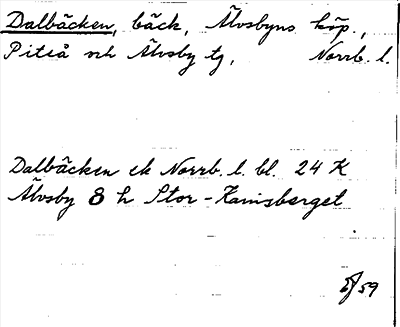 Dalbäcken, bäck, Älvsbyns köp.,
Piteå och Älvsby tg, Norrb. l.
Dalbäcken ek Norrb. l. bl. 24 K
Älvsby 8 h Stor-Kanisberget
59